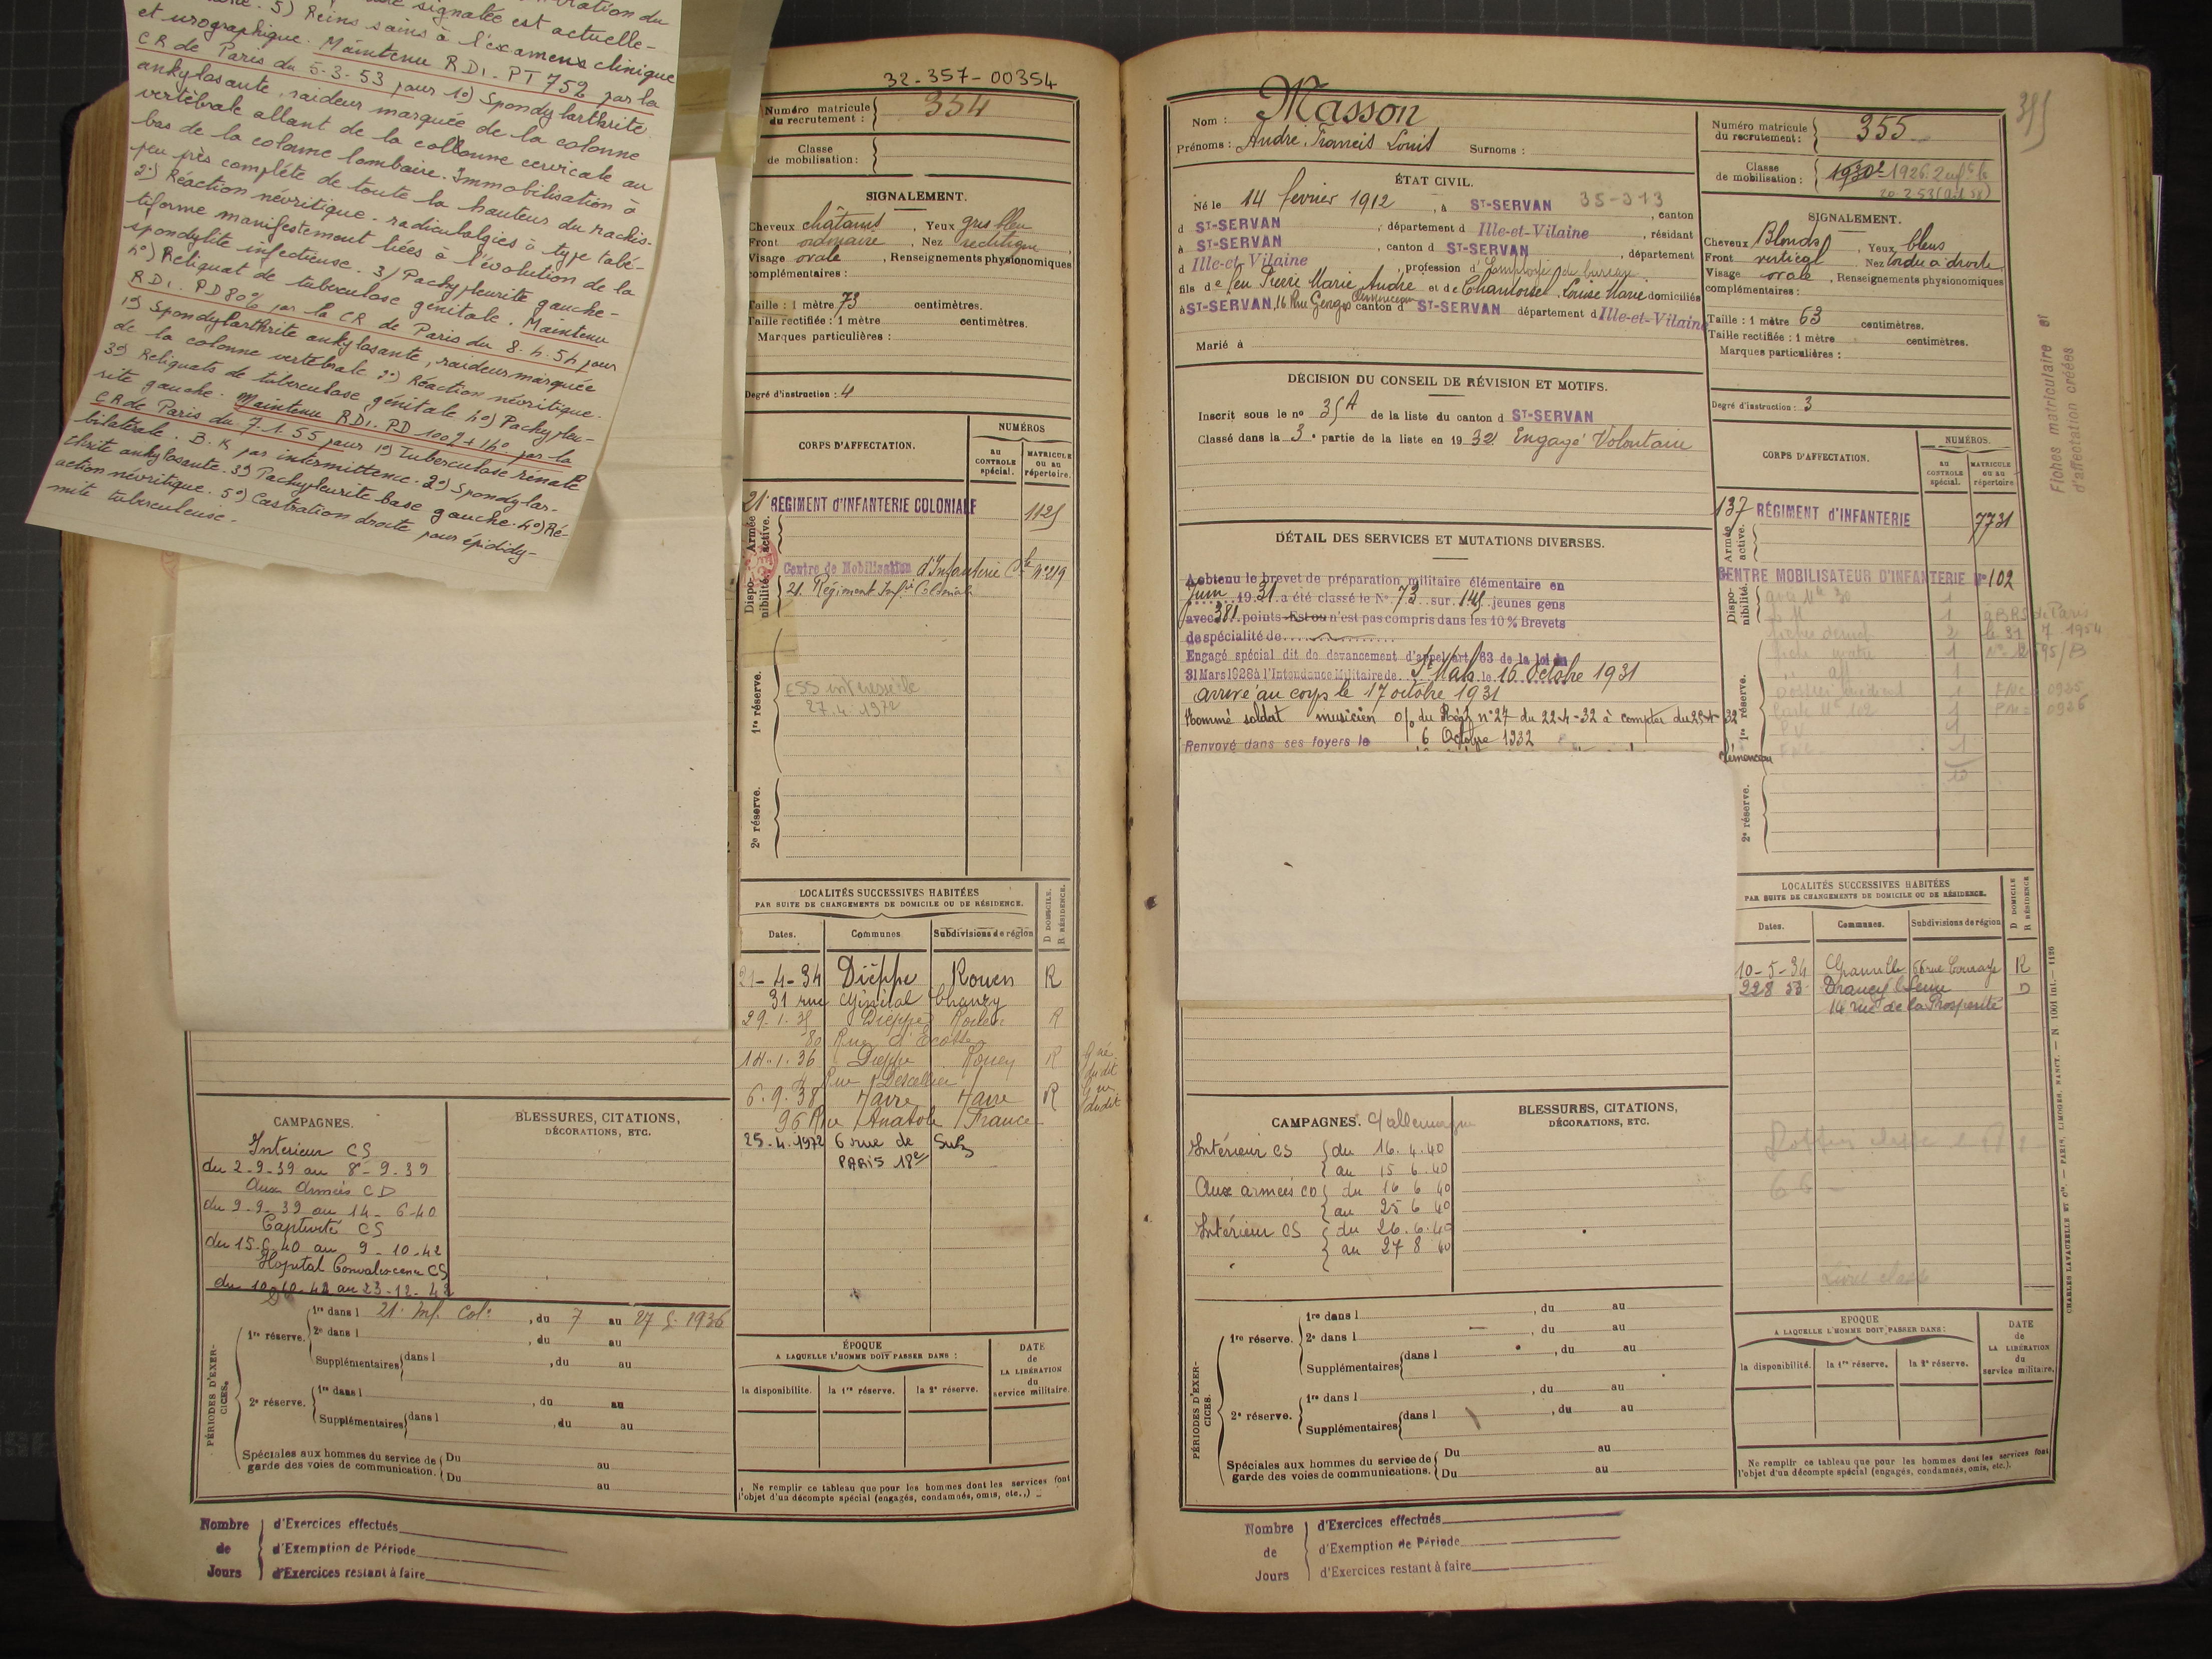 et urographique. Maintenu RD1. PT 752 par la
CR de Paris du 5-3-53 pour 1o) Spondylarthrite
ankylosante, raideur marquée de la colonne
vertébrale allant de la collonne cervicale au
bas de la colonne lombaire. Immobilisation à
peu près complète de toute la hauteur du rachis.
2o) Réaction névritique - radiculalgies à type tabé-
tiforme manifestement liées à l'évolution de la
spondylite infectieuse. 3) Pachypleurite gauche -
4o) Reliquat de tuberculose génitale. Maintenu
RD1. PD 80% par la CR de Paris du 8.4.54 pour
1o) Spondylarthrite ankylosante, raideur marquée
de la colonne vertébrale 2o) Réaction névritique.
3o) Reliquats de tuberculose génitale 4o) Pachypleu-
rite gauche. Maintenu RD1. PD 100% + 14o par la
CR de Paris du 7.1.55 pour 1o) Tuberculose rénale
bilatérale. B.K par intermittence. 2o) Spondylar-
thrite ankylosante. 3o) Pachypleurite base gauche. 4o) Ré-
action névritique. 5o) Castration droite pour épididy-
mite tuberculeuse.
32-357-00354
Numéro matricule du recrutement : 354
Classe de mobilisation :
SIGNALEMENT.
Cheveux châtains, Yeux gris bleu
Front ordinaire, Nez rectiligne
Visage ovale, Renseignements physionomiques
complémentaires :
Taille : 1 mètre 73 centimètres.
Taille rectifiée : 1 mètre centimètres.
Marques particulières :
Degré d'instruction : 4
CORPS D'AFFECTATION.
NUMÉROS
au CONTROLE spécial.
MATRICULE ou au répertoire.
Armée active.
21e RÉGIMENT D'INFANTERIE COLONIALE 1125
Dispo-nibilité.
Centre de Mobilisation d'Infanterie Cle No 219
21. Régiment Infie Coloniale
1re réserve.
ESS intéressé le
27.4.1972
2e réserve.
LOCALITÉS SUCCESSIVES HABITÉES
PAR SUITE DE CHANGEMENTS DE DOMICILE OU DE RÉSIDENCE.
D DOMICILE. R RÉSIDENCE.
Dates. Communes Subdivisions de région
21-4-34 Dieppe Rouen R
31 rue Général Chanzy
29.1.35 Dieppe Rouen R
80 Rue d'Ecosse
14.1.36 Dieppe Rouen R
Rue Descellier
6.9.38 Havre Havre R
96 Rue Anatole France
25.4.1972 6 rue de Suez
PARIS 18e
CAMPAGNES.
Interieur CS
du 2-9-39 au 8-9-39
Aux Armées CD
du 9-9-39 au 14-6-40
Captivité CS
du 15-6-40 au 9-10-42
Hopital Convalescence CS
du 10-10-42 au 23-12-42
BLESSURES, CITATIONS,
DÉCORATIONS, ETC.
PÉRIODES D'EXER-CICES.
1re réserve. 1re dans l 21e Inf. Colle, du 7 au 27.9.1936
2e dans l , du au
Supplémentaires dans l , du au
2e réserve. 1re dans l , du au
Supplémentaires dans l , du au
Spéciales aux hommes du service de garde des voies de communication. Du au
Du au
ÉPOQUE
A LAQUELLE L'HOMME DOIT PASSER DANS :
la disponibilité. la 1re réserve. la 2e réserve.
DATE de LA LIBÉRATION du service militaire.
Ne remplir ce tableau que pour les hommes dont les services font
l'objet d'un décompte spécial (engagés, condamnés, omis, etc.,)
Nombre de Jours
d'Exercices effectués
d'Exemption de Période
d'Exercices restant à faire
Nom : Masson
Prénoms : André, Francis Louis Surnoms :
ÉTAT CIVIL.
Né le 14 février 1912, à ST-SERVAN 35-313, canton
d ST-SERVAN, département d Ille-et-Vilaine, résidant
à ST-SERVAN, canton d ST-SERVAN, département
d Ille-et-Vilaine, profession d'Employé de bureau
fils de feu Pierre Marie André et de Chamoise Louise Marie domiciliés
à ST-SERVAN, 16 Rue Georges Clemenceau canton d ST-SERVAN département d Ille-et-Vilaine
Marié à
DÉCISION DU CONSEIL DE RÉVISION ET MOTIFS.
Inscrit sous le no 35A de la liste du canton d ST-SERVAN
Classé dans la 3e partie de la liste en 1932 Engagé Volontaire
DÉTAIL DES SERVICES ET MUTATIONS DIVERSES.
A obtenu le brevet de préparation militaire élémentaire en
Juin 1931 a été classé le No 73 sur 145 jeunes gens
avec 381 points Est ou n'est pas compris dans les 10% Brevets
de spécialité de
Engagé spécial dit de devancement d'appel art. 63 de la loi du
31 Mars 1928 à l'Intendance Militaire de St Malo le 16 Octobre 1931
arrivé au corps le 17 octobre 1931
Nommé soldat musicien o/ du Régt no 27 du 22-4-32 à compter du 25-4-32
Renvoyé dans ses foyers le 6 Octobre 1932
Numéro matricule du recrutement : 355
355
Classe de mobilisation : 1930 1926
SIGNALEMENT.
Cheveux Blonds, Yeux bleus
Front vertical, Nez tordu à droite
Visage ovale, Renseignements physionomiques
complémentaires :
Taille : 1 mètre 63 centimètres.
Taille rectifiée : 1 mètre centimètres.
Marques particulières :
Degré d'instruction : 3
Fiches matriculaire et
d'affectation créées
CORPS D'AFFECTATION.
NUMÉROS.
au CONTROLE spécial.
MATRICULE ou au répertoire
Armée active.
137 RÉGIMENT d'INFANTERIE 7731
Dispo-nibilité.
CENTRE MOBILISATEUR D'INFANTERIE No 102
1re réserve.
2e réserve.
LOCALITÉS SUCCESSIVES HABITÉES
PAR SUITE DE CHANGEMENTS DE DOMICILE OU DE RÉSIDENCE.
D DOMICILE R RÉSIDENCE
Dates. Communes. Subdivisions de région
10-5-34 Granville 66 rue Couraye R
22 8 53 Drancy Seine D
14 rue de la Prospérité
CAMPAGNES. c/allemagne
Intérieur CS du 16.4.40
au 15 6.40
Aux armées CD du 16 6 40
au 25 6 40
Intérieur CS du 26.6.40
au 27 8 40
BLESSURES, CITATIONS,
DÉCORATIONS, ETC.
PÉRIODES D'EXER-CICES.
1re réserve. 1re dans l , du au
2e dans l , du au
Supplémentaires dans l , du au
2e réserve. 1re dans l , du au
Supplémentaires dans l , du au
Spéciales aux hommes du service de garde des voies de communications. Du au
Du au
EPOQUE
A LAQUELLE L'HOMME DOIT PASSER DANS :
la disponibilité. la 1re réserve. la 2e réserve.
DATE de LA LIBÉRATION du service militaire.
Ne remplir ce tableau que pour les hommes dont les services font
l'objet d'un décompte spécial (engagés, condamnés, omis, etc.).
CHARLES LAVAUZELLE ET Cie. — PARIS, LIMOGES, NANCY. — N. 1001 int. — 1120
Nombre de Jours
d'Exercices effectués
d'Exemption de Période
d'Exercices restant à faire